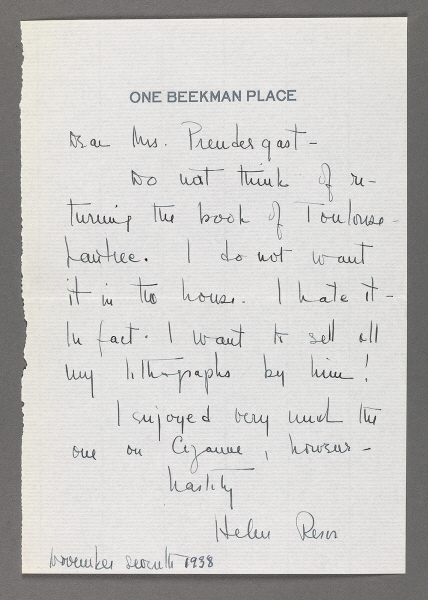 ONE BEEKMAN PLACE
Dear Mrs. Prendergast –
Do not think of re-
turning the book of Toulouse-
Lautrec. I do not want
it in the house. I hate it –
In fact. I want to sell all
my lithographs by him!
I enjoyed very much the
one on Cezanne, however –
hastily
Helen Resor
November seventh 1938